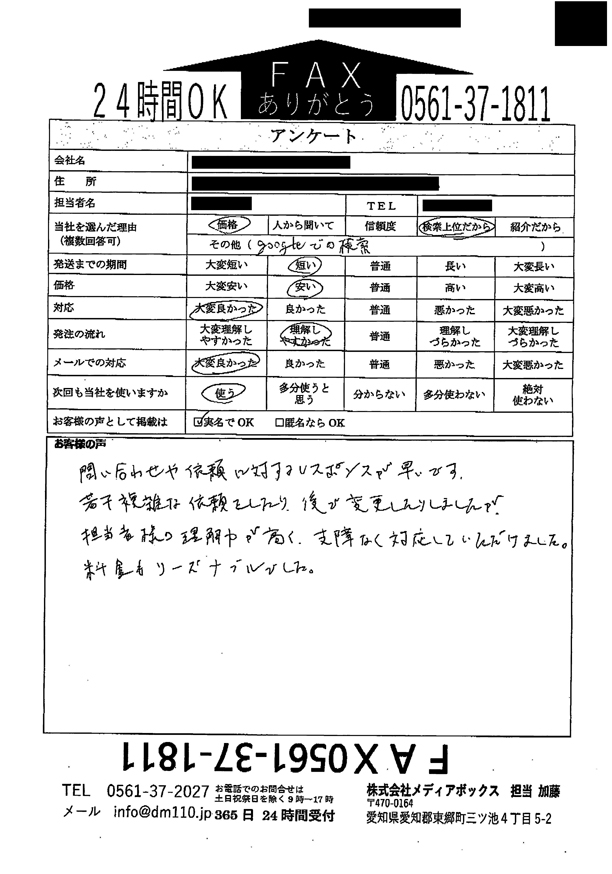 FAX
ありがとう
24時間OK
0561-37-1811
アンケート
会社名
住 所
担当者名 TEL
当社を選んだ理由 (複数回答可) 価格 人から聞いて 信頼度 検索上位だから 紹介だから
その他 (googleでの検索 )
発送までの期間 大変短い 短い 普通 長い 大変長い
価格 大変安い 安い 普通 高い 大変高い
対応 大変良かった 良かった 普通 悪かった 大変悪かった
発注の流れ 大変理解しやすかった 理解しやすかった 普通 理解しづらかった 大変理解しづらかった
メールでの対応 大変良かった 良かった 普通 悪かった 大変悪かった
次回も当社を使いますか 使う 多分使うと思う 分からない 多分使わない 絶対使わない
お客様の声として掲載は ☑実名でOK □匿名ならOK
お客様の声
問い合わせや依頼に対するレスポンスが早いです。
若干複雑な依頼をしたり、後で変更したりしましたが、
担当者様の理解力が高く、支障なく対応していただけました。
料金もリーズナブルでした。
FAX0561-37-1811
TEL 0561-37-2027 お電話でのお問合せは
土日祝祭日を除く9時ー17時
メール info@dm110.jp 365日24時間受付
株式会社メディアボックス 担当 加藤
〒470-0164
愛知県愛知郡東郷町三ツ池4丁目5-2